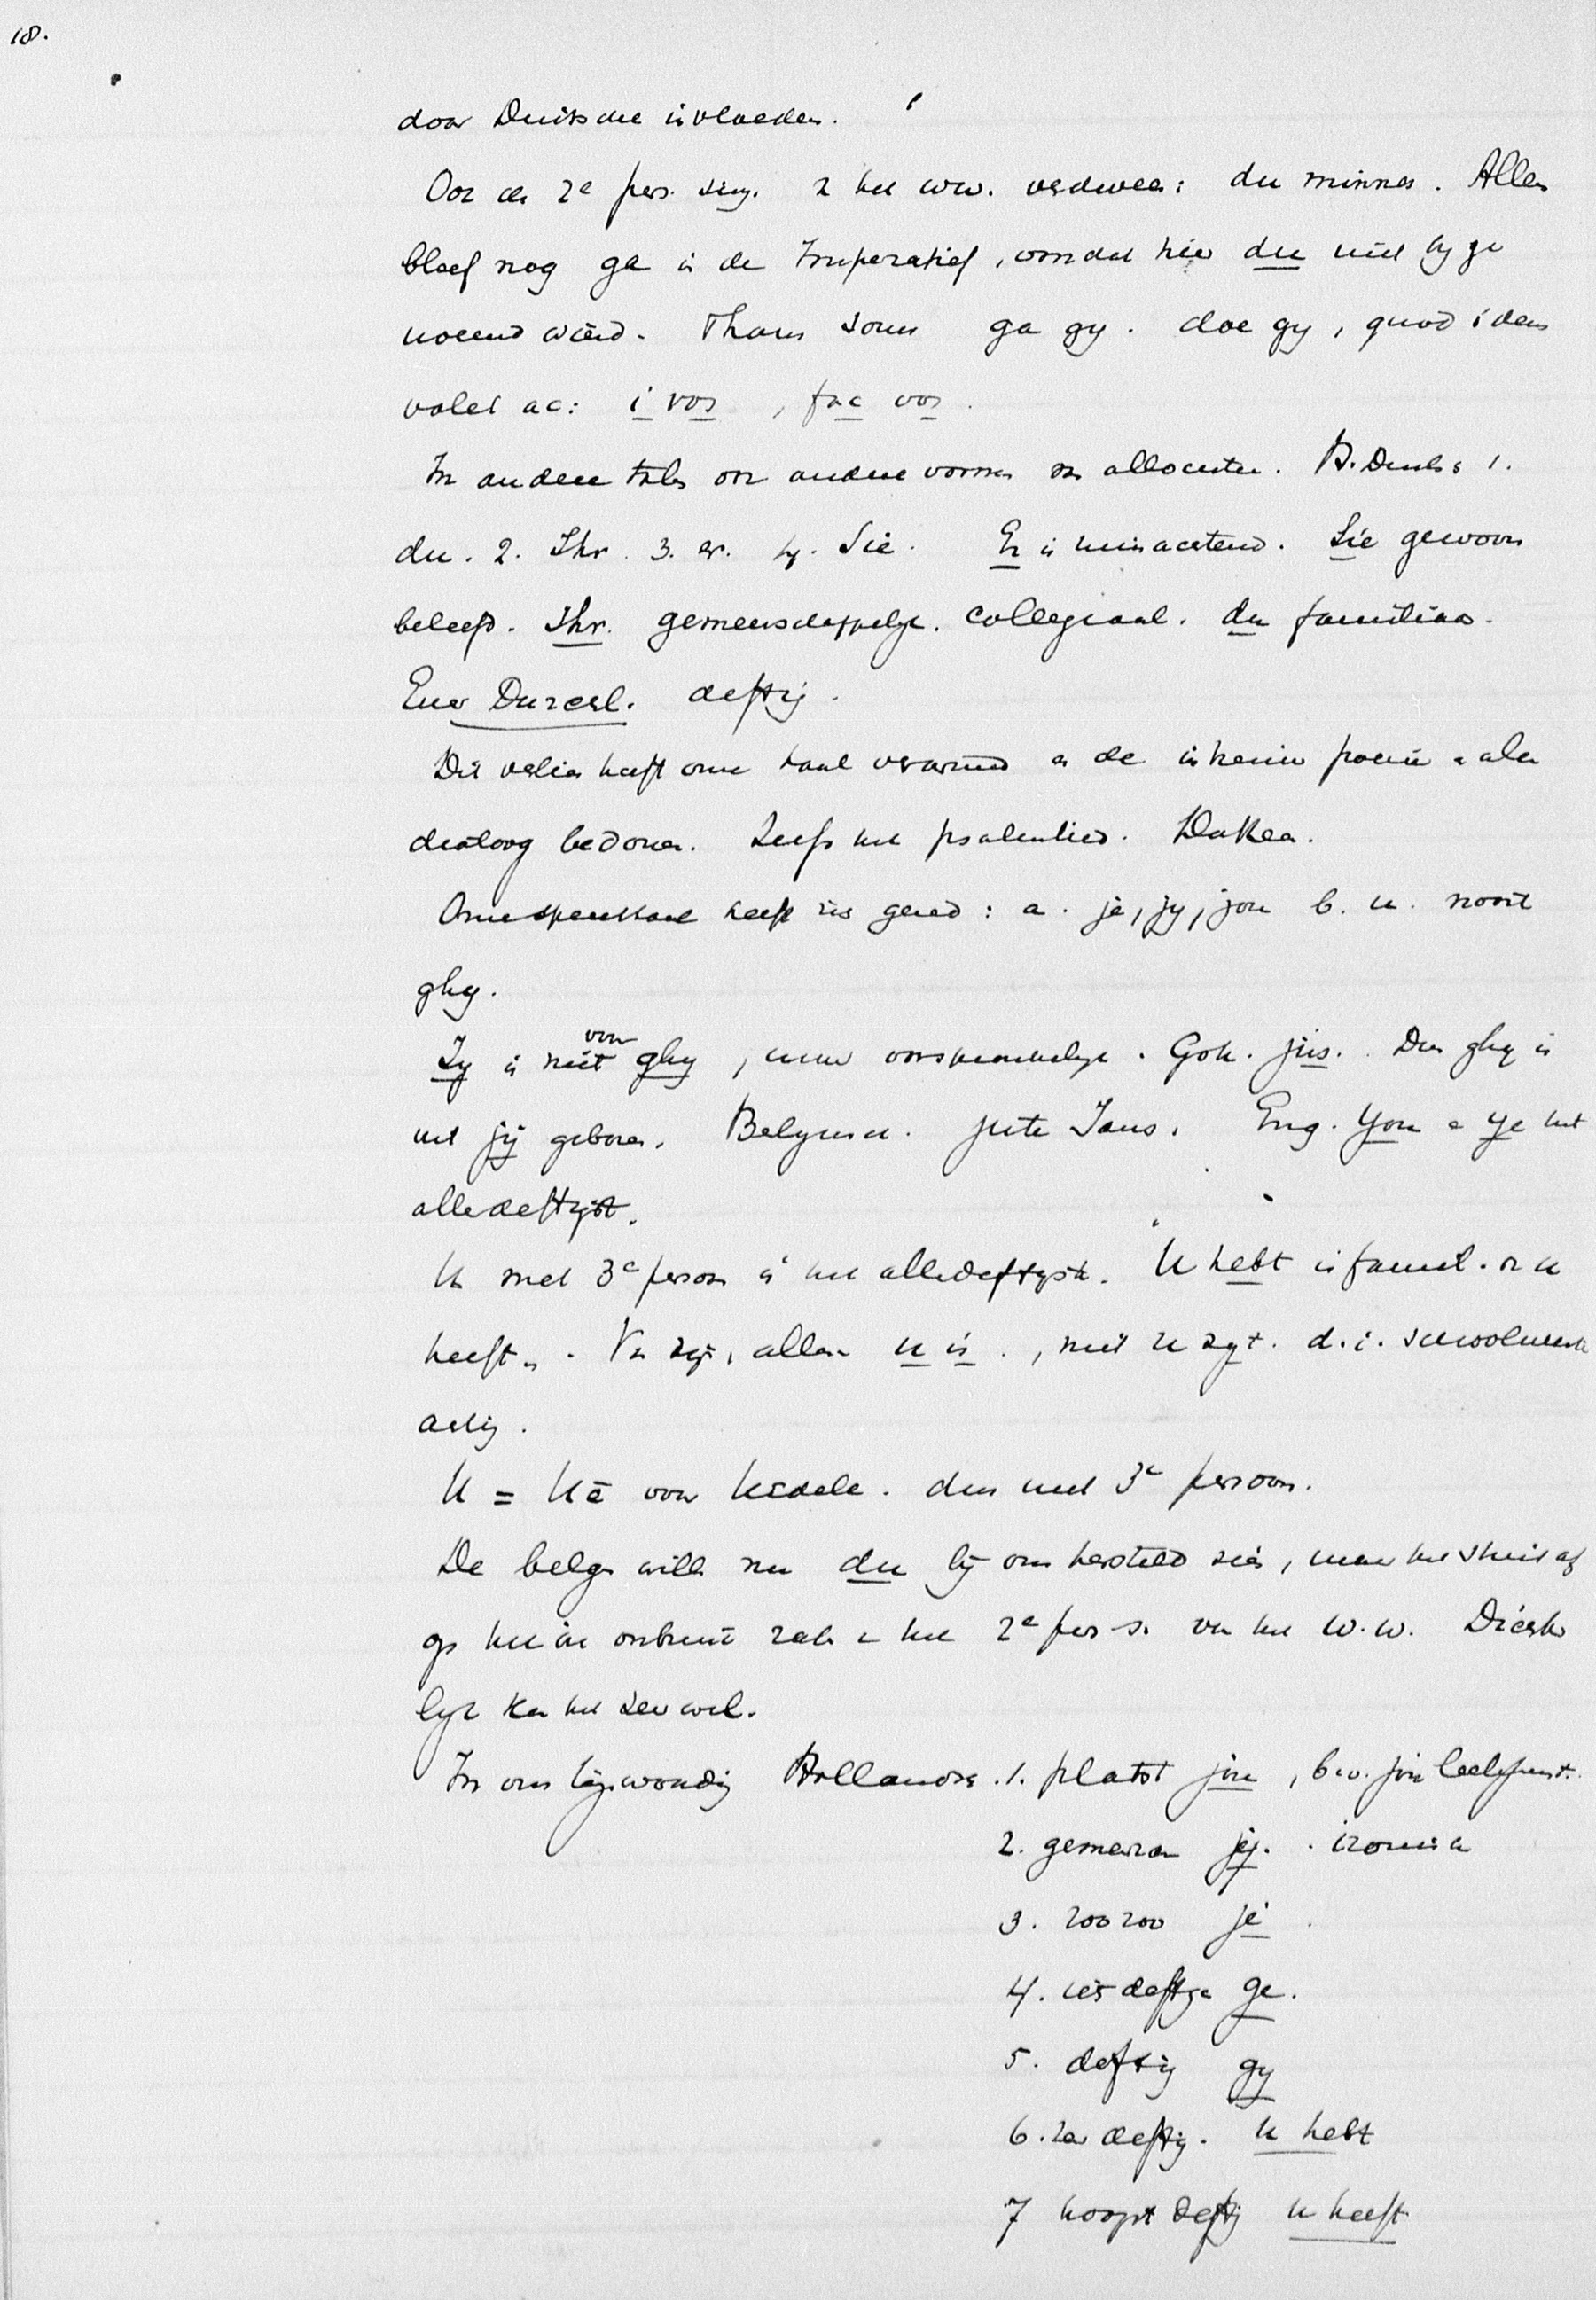 18.
door Duitsche invloeden.
Ook de 2e pers. sing. v het ww. verdween: du minnes. Alleen
bleef nog ga in de Imperatief, omdat hier du niet by ge
noemd wierd. Thans soms ga gy. doe gy, quod idem
valet ac: i vos, fac vos.
In andere talen ook andere vormen van allocutie. B. Duits 1.
du. 2. Ihr. 3. er. 4. Sie. Er is minachtend. Sie gewoon
beleefd. Ihr. gemeenschappelijk. Collegiaal. du familiaar.
Euer Durchl. deftig.
Dit verlies heeft onze taal verarmd en de intieme poezie en allen
dialoog bedorven. Zelfs het psalmlied. DaKea.
Onze spreektaal heeft iets gered: a. je, jy, jou b. u. nooit
ghy.
Jy is niet voor ghy, maar oorspronkelijk. Goth. jus. Den ghy is
uit jij geboren. Belgisch. Jans. Eng. You en ye het
allerdeftigst.
U met 3e persoon is het allerdeftigst. U hebt is famil. ook u
heeft. Van zijn, alleen u is., niet u zyt. d.i. schoolmeester
achtig.
U = Ue voor Uedele. dus met 3e persoon.
De Belgen willen nu du bij ons hersteld zien, maar het stuit af
op het in onbruik raken v het 2e pers. s. van het w.w. Dichter
lijk kan het zeer wel.
In ons tegenwoordig Hollandsch. 1. platst jou, b.v. jou leelykert.
2. gemeen jij. ironisch
3. zoo zoo je.
4. iets deftiger ge.
5. deftig gy
6. zeer deftig. U hebt
7 hoogst deftig u heeft